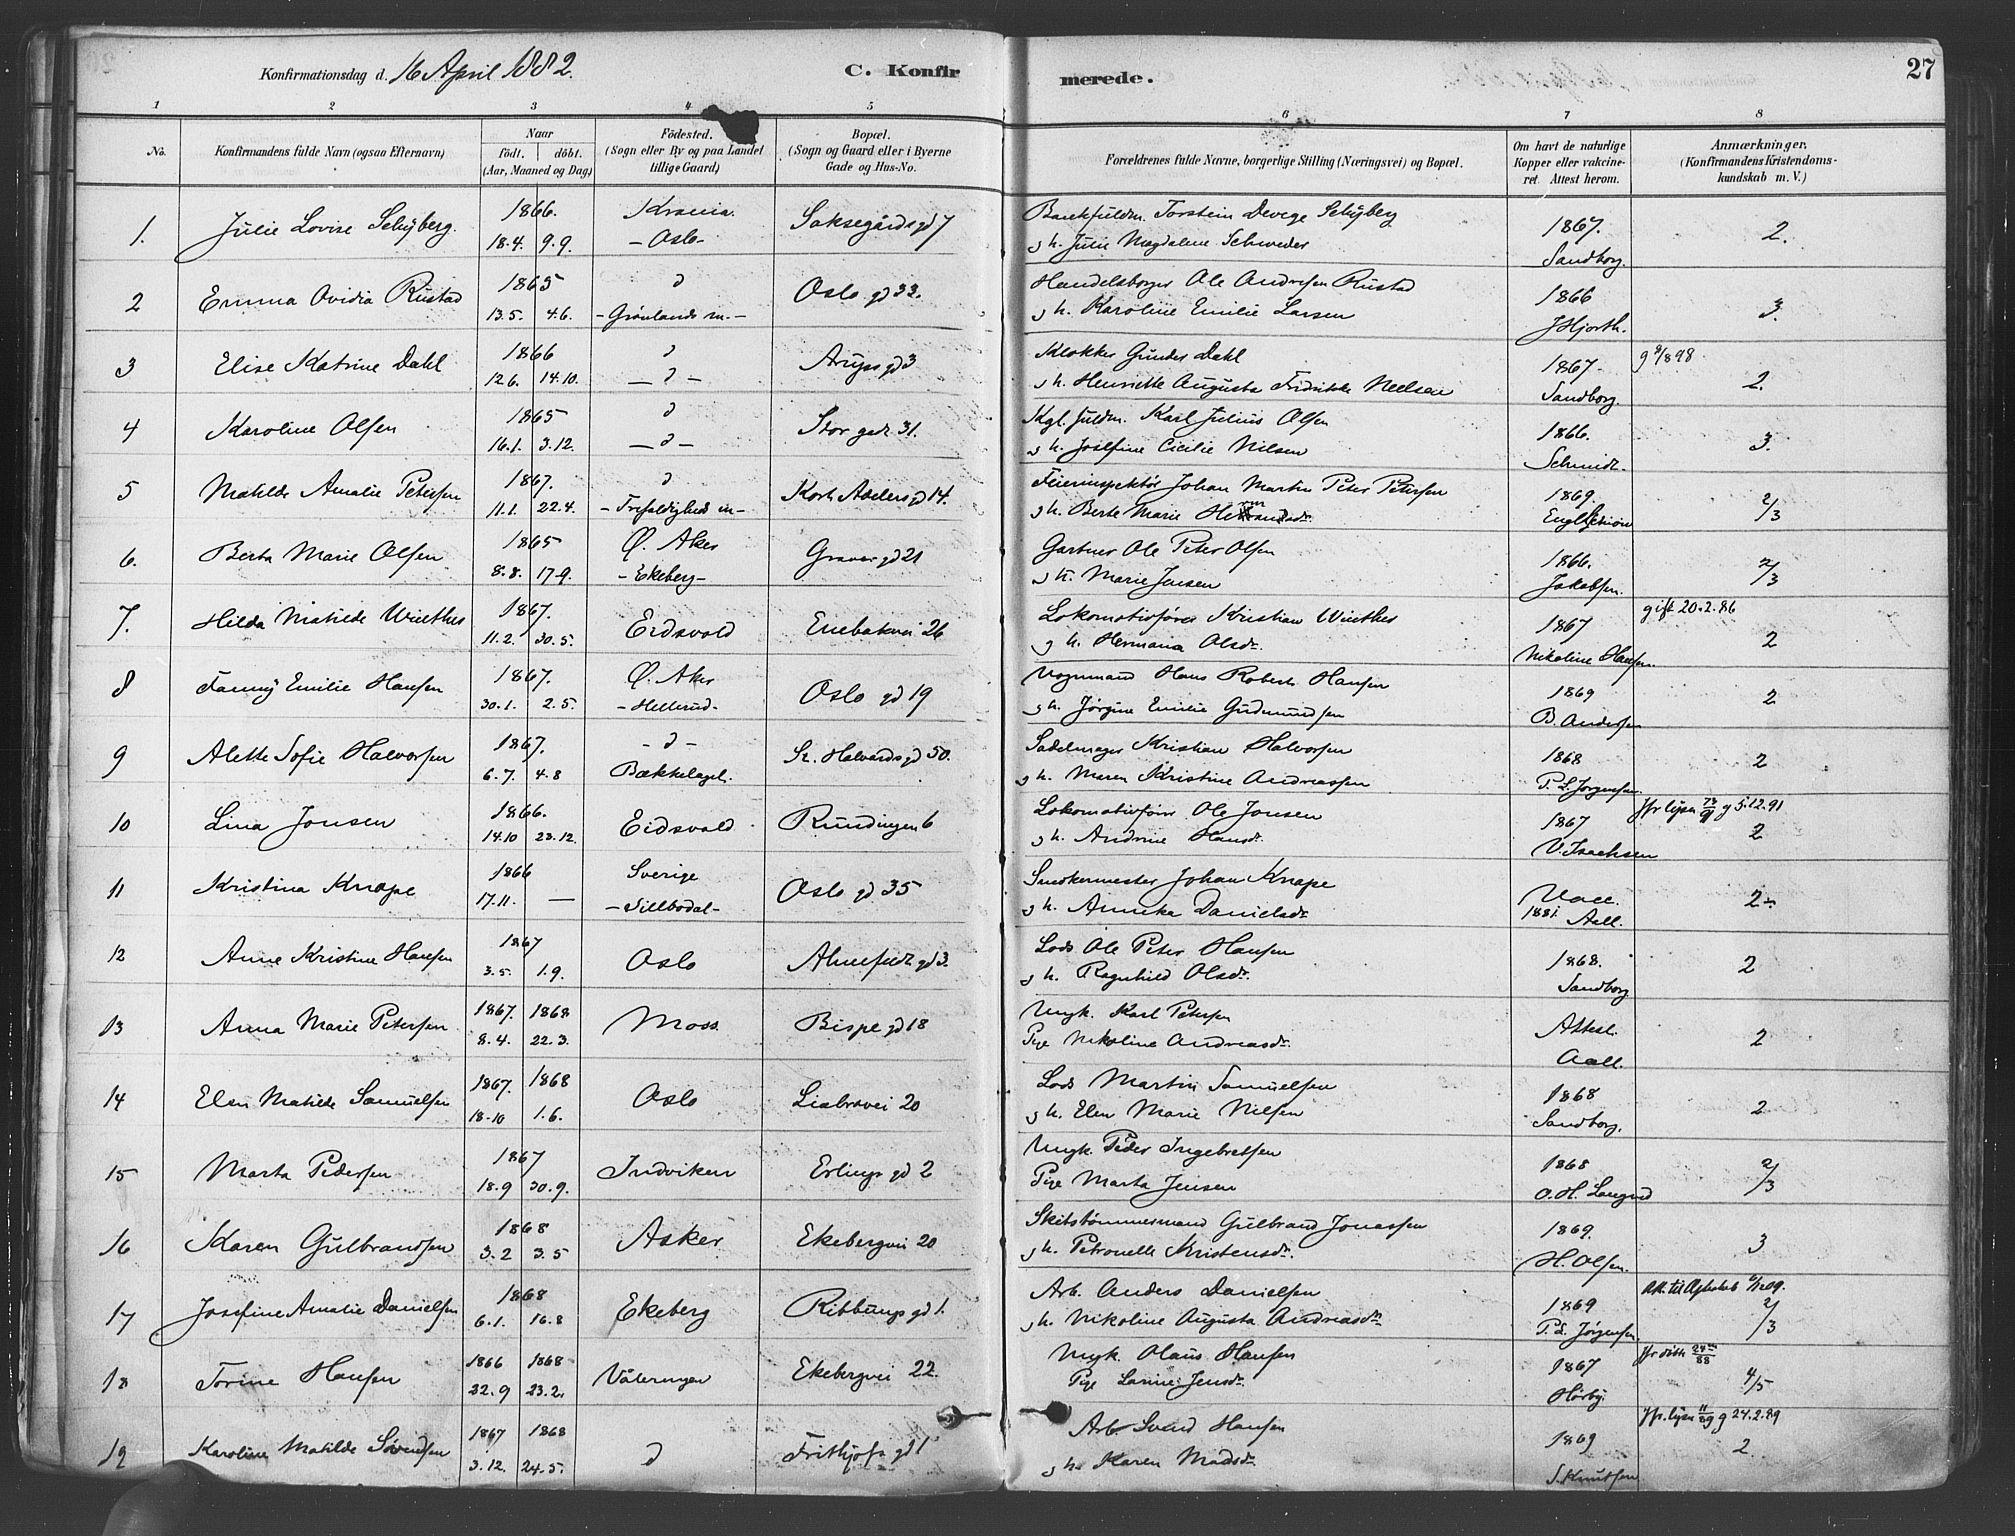 Konfirmationsdag d. 16 April 1882.
C. Konfir
merede.
27
1 2 3 4 5 6 7 8
No.
Konfirmandens fulde Navn (ogsaa Efternavn)
Naar
födt. döbt.
(Aar, Maaned og Dag)
Födested.
(Sogn eller By og paa Landet
tillige Gaard)
Bopæl.
(Sogn og Gaard eller i Byerne
Gade og Hus-No.
Forældrenes fulde Navne, borgerlige Stilling (Næringsvei) og Bopæl.
Om havt de naturlige
Kopper eller vakcine-
ret. Attest herom.
Anmærkninger.
(Konfirmandens Kristendoms-
kundskab m. V.)
1. Julie Lovise Schÿberg. 1866. 18.4. 9.9. Krania. - Oslo - Saksegårdsgd 7
Bankfuldm. Torstein Devege Schÿberg
g h. Julie Magdalene Schweder
1867. Sandborg. 2.
2 Emma Ovidia Rustad 1865 13.5. 4.6. d - Grönlands m. - Oslo gd 33.
Handelsborger Ole Andresen Rustad
g h. Karoline Emilie Larsen
1866 J Hjorth. 3.
3 Elise Katrine Dahl 1866 12.6. 14.10. d - d - Arups gd 3
Klokker Gunder Dahl
g h. Henriette Augusta Fredrikke Neelsen
1867. Sandborg. g 9/8 98 2.
4 Karoline Olsen 1865 16.1. 3.12. d - d - Stor gade 31.
Kgl. fuldm. Karl Julius Olsen
g h. Josefine Cicilie Nilsen
1866. Schmidt. 3.
5 Matilde Amalie Petersen 1867. 11.1. 22.4. d - Trefoldigheds m - Kort Adelers gd 14.
Feierinspektör Johan Martin Peter Petersen
g h. Berte Marie
1869. 2/3
6. Berta Marie Olsen 1865 8.8. 17.9. Ø. Aker - Ekeberg - Graver gd 21
Gartner Ole Peter Olsen
g h. Marie Jensen
1866. Jakobsen. 2/3
7. Hilda Matilde Winther 1867. 11.2. 30.5. Eidsvold Enebakvei 26
Lokomotivfører Kristian Winther
g h. Hermana Olsdr.
1867 Nikoline Hansen. gift 20.2.86 2
8 Fanny Emilie Hansen 1867. 30.1. 2.5. Ø. Aker - Hellerud - Oslo gd 19
Vognmand Hans Robert Hansen
g h. Jørgine Emilie Gudmundsen
1869 B. Andersen 2
9 Alette Sofie Halvorsen 1867. 6.7. 4.8 - d - Bækkelaget. St. Halvards gd 50.
Sadelmager Kristian Halvorsen
g h. Maren Kristine Andreassen
1868 P. L. Jørgensen. 2
10 Lina Jonsen 1866. 14.10 23.12. Eidsvold. Rundingen 6
Lokomotivfører Ole Jonsen
g h. Andrine Hansdr.
1867 V. Isachsen g 5.12.91 2
11 Kristina Knape 1866 17.11. — Sverige - Sillbodal - Oslo gd 35
Snedkermester Johan Knape
g h. Annika Danielsdr
Vacc. 1881. Aall. 2
12 Anne Kristine Hansen 1867 3.5. 1.9. Oslo Ahnefeldt gd 3.
Lods Ole Peter Hansen
g h. Ragnhild Olsdr.
1868. Sandborg 2
13 Anna Marie Petersen. 1867. 1868 8.4. 22.3. Moss. Bispe gd 18
Ungk. Karl Petersen
Pige Nikoline Andreasdr.
Attest. Aall. 2
14 Elen Matilde Samuelsen 1867. 1868 18.10 1.6. Oslo Liabrovei 20
Lods Martin Samuelsen
g h. Elen Marie Nilsen
1868 Sandborg. 2
15 Marta Pedersen 1867 18.9 30.9. Indviken Erlings gd 2
Ungk. Peder Ingebretsen
Pige Marta Jensen
1868 O. H. Langrud 2/3
16 Karen Gulbrandsen 1868 3.2 3.5 Asker Ekebergvei 20
Skibstømmermand Gulbrand Jonassen
g h. Petronelle Kristensdr.
1869. H. Olsen. 3
17 Josefine Amalie Danielsen 1868 6.1. 16.8 Ekeberg Ribbungs gd 1.
Arb. Anders Danielsen
g h. Nikoline Augusta Andreasdr
1869 P. L. Jørgensen. 2/3
18 Torine Hansen 1866 1868 22.9 23.2. Vålerengen Ekebergvei 22.
Ungk. Olaus Hansen
Pige Larine Jensdr.
1867 Hörby. 4/5
19 Karoline Matilde Svendsen 1867 1868 3.12. 24.5. d Frithjofs gd 1
Arb Svend Hansen
g h. Karen Madsdr
1869 S. Knutsen g 24.2.89 2.